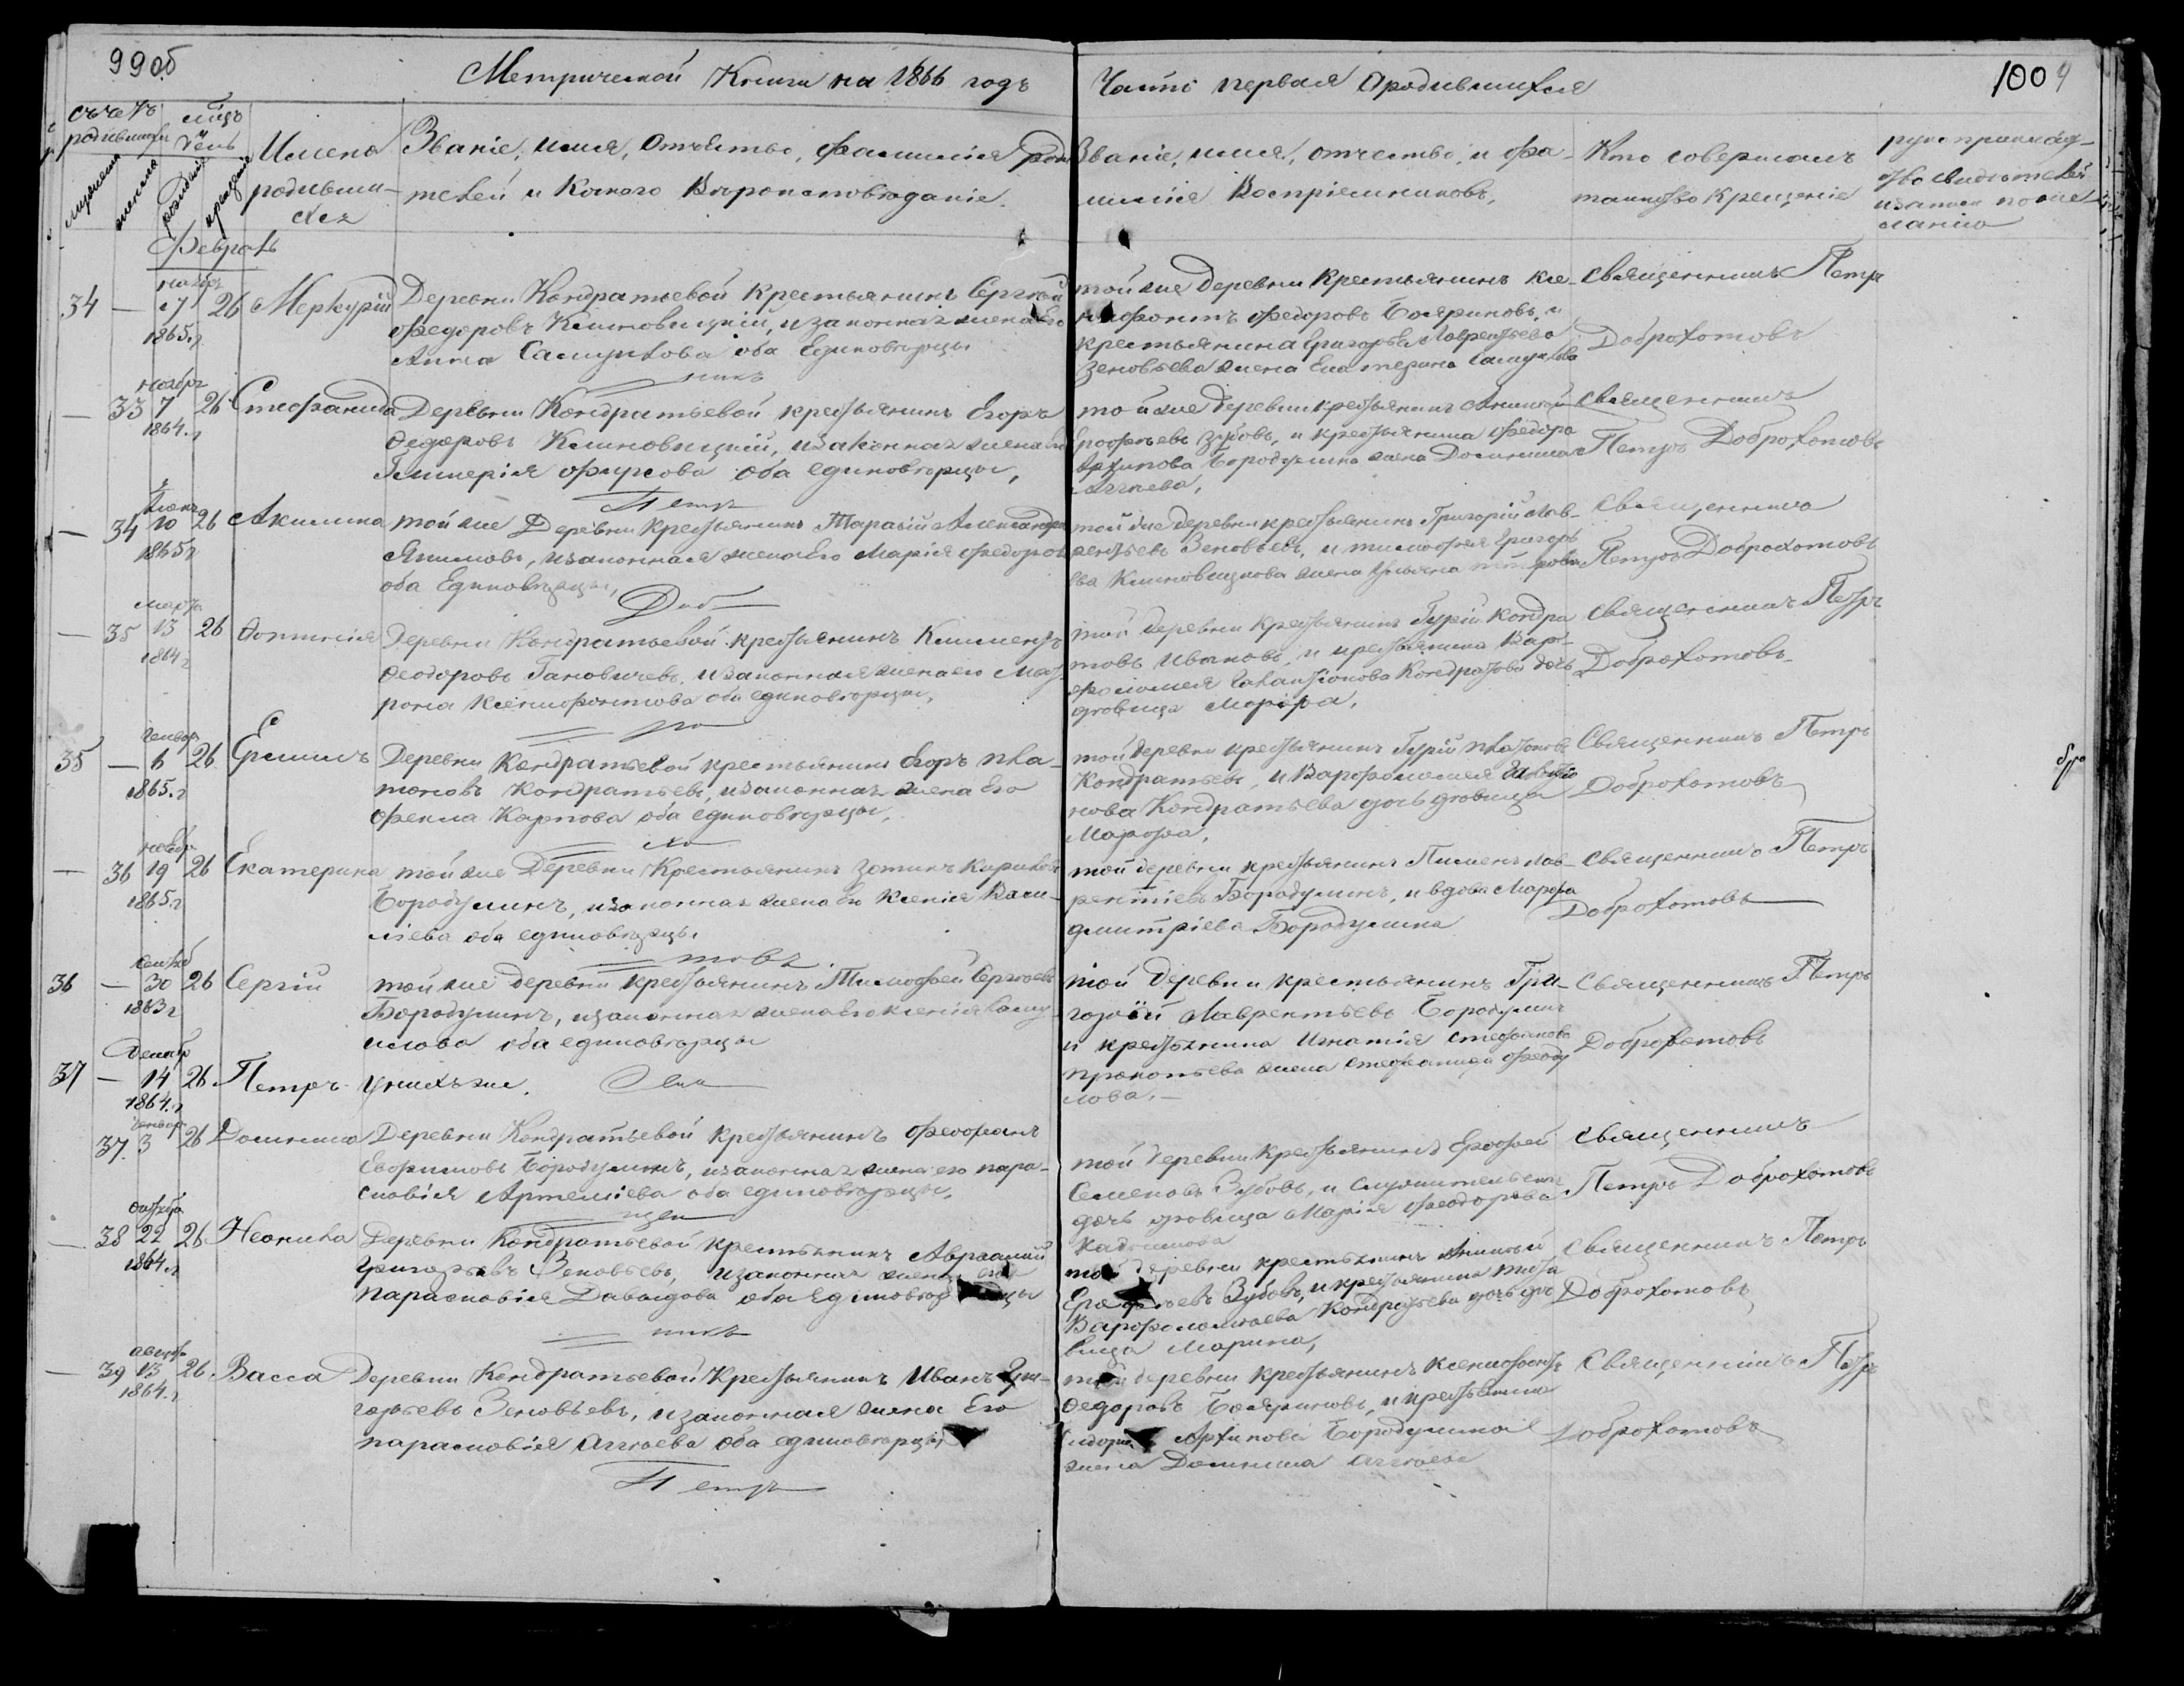 99об
Метрической Книги на 1866 годъ
Часть первая о родившихся
100
счетъ родившихся
мужеска
женска
мѣсяцъ и день
рожденія
крещенія
Имена родившихся
Званіе, имя, отчество, фамилія роди-
телей и какого вѣроисповѣданія.
Званіе, имя, отчество, и фа-
милія воспріемниковъ.
Кто совершалъ
таинство крещенія
рукоприклад-
ство свидѣтелей
записи по же-
ланію
Февраль
34 — ноябр. 17 1865.г 26 Меркурій
Деревни Кондратьевой крестьянинъ Сергѣй
Федоровъ Климовицкій, и законная жена его
Анна Самуилова оба Единовѣрцы
той же деревни крестьянинъ Ксе-
нофонтъ Федоровъ Бояриновъ, и
крестьянина Григорья Лаврентьева
Зеновьева жена Екатерина Самуилова
Священникъ Петръ
Доброхотовъ
никъ
— 33 ноября 7 1864.г 26 Стефанида
Деревни Кондратьевой, крестьянинъ Егоръ
Федоровъ Климовицкій, и законная жена его
Гликерія Фирсова оба единовѣрцы,
той же деревни крестьянинъ Аникій
Ерофѣевъ Зубовъ, и крестьянина Федора
Архипова Бородулина жена Домникія
Аггѣева,
Священникъ
Петръ Доброхотовъ
Петръ
— 34 10 1865г 26 Акилина
той же Деревни крестьянинъ Тарасій Александр
Якимовъ, и законная жена его Марія Федоров
оба Единовѣрцы,
той же деревни крестьянинъ Григорій Лав-
рентьевъ Зеновьевъ, и Тимофея Григорь-
ева Климовицкова жена Ульяна
Священникъ
Петръ Доброхотовъ
Доб
— 35 марта 13 1864г 26
Деревни Кондратьевой крестьянинъ Климентъ
Феодоровъ Гановичевъ, и законная жена его Мат-
рона Ксенофонтова оба единовѣрцы,
той деревни крестьянинъ Гурій Кондра
товъ Ивановъ, и крестьянина Вар-
фоломея Галактіонова Кондратова дочь
дѣвица Марфа,
Священникъ Петръ
Доброхотовъ
ро
35 — генвар 6 1865.г 26 Ермилъ
Деревни Кондратьевой крестьянинъ Егоръ Пла-
тоновъ Кондратьевъ, и законная жена Его
Фекла Карпова оба единовѣрцы,
той деревни крестьянинъ Гурій Платоновъ
Кондратьевъ, и Варфоломея
нова Кондратьева дочь дѣвица
Марфа,
Священникъ Петръ
Доброхотовъ
хо
— 36 ноябр 19 1865.г 26 Екатерина
той же Деревни Крестьянинъ Зотикъ Кириловъ
Бородулинъ, и законная жена его Ксенія Васи-
ліева оба единовѣрцы.
той деревни крестьянинъ Пименъ Лав-
рентіевъ Бородулинъ, и вдова Марфа
Дмитріева Бородулина
Священникъ Петръ
Доброхотовъ
товъ.
36 — сентяб 30 1863г 26 Сергій
той же деревни крестьянинъ Тимофей Сергѣевъ
Бородулинъ, и законная жена его Ксенія Саму-
илова оба единовѣрцы
той деревни крестьянинъ Гри-
горій Лаврентьевъ Бородулинъ
и крестьянина Игнатія Стефанова
Прокопьева жена Стефанида Феоду
лова.—
Священникъ Петръ
Доброхотовъ
37 — декабр 14 1864.г 26 Петръ у нихъ же.
Свя
37. генвар 3 26 Домникія
Деревни Кондратьевой крестьянинъ Феофанъ
Евфимовъ Бородулинъ, и законная жена его Пара-
сковія Артеміева оба единовѣрцы.
той деревни крестьянинъ Ерофей
Семеновъ Зубовъ, и
дочь дѣвица Марія Феодорова
Священникъ
Петръ Доброхотовъ
щен
— 38 октября 22 1864.г 26 Неонила
Деревни Кондратьевой крестьянинъ Авраамій
Григорьевъ Зеновьевъ, и законная жена его
Парасковія Давыдова оба единовѣрцы
той деревни крестьянинъ Аникій
Ерофѣевъ Зубовъ, и крестьянина Тита
Варфоломѣева Кондратьева дочь дѣ-
вица Марина,
Священникъ Петръ
Доброхотовъ
никъ
— 39 август 13 1864.г 26. Васса
Деревни Кондратьевой Крестьянинъ Иванъ Гри-
горьевъ Зеновьевъ, и законная жена Его
Парасковія Аггѣева оба единовѣрцы,
той деревни крестьянинъ Ксенофонтъ
Федоровъ Бояриновъ, и крестьянина
Федора Архипова Бородулина
жена Домникія Аггѣева
Священникъ Петръ
Доброхотовъ
Петръ